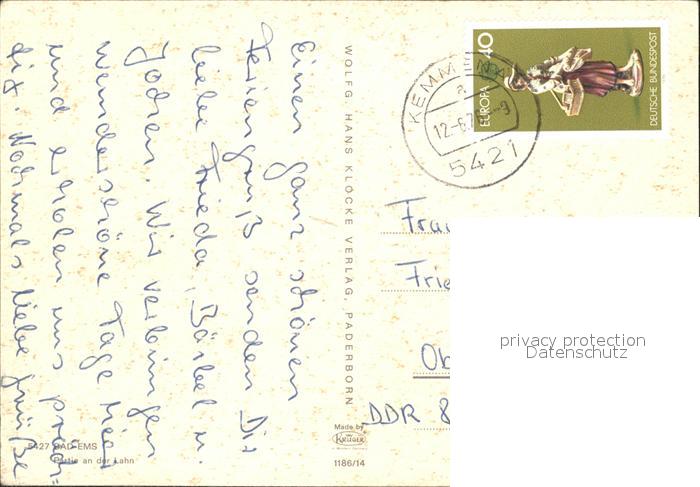 Einen ganz schönen
Feriengruß senden Dir
liebe Frieda, Bärbel u.
Jochen. Wir verbringen
wunderschöne Tage hier
und erholen uns präch=
tig. Nochmals liebe Grüße
WOLFG. HANS KLOCKE VERLAG, PADERBORN
EUROPA 40
DEUTSCHE BUNDESPOST
KEMMENAU
a
12-8.7 -9
5421
Frau
Frie
Ob
DDR 8
privacy protection
Datenschutz
Made by
KRÜGER
1186/14
5427 BAD EMS
Partie an der Lahn